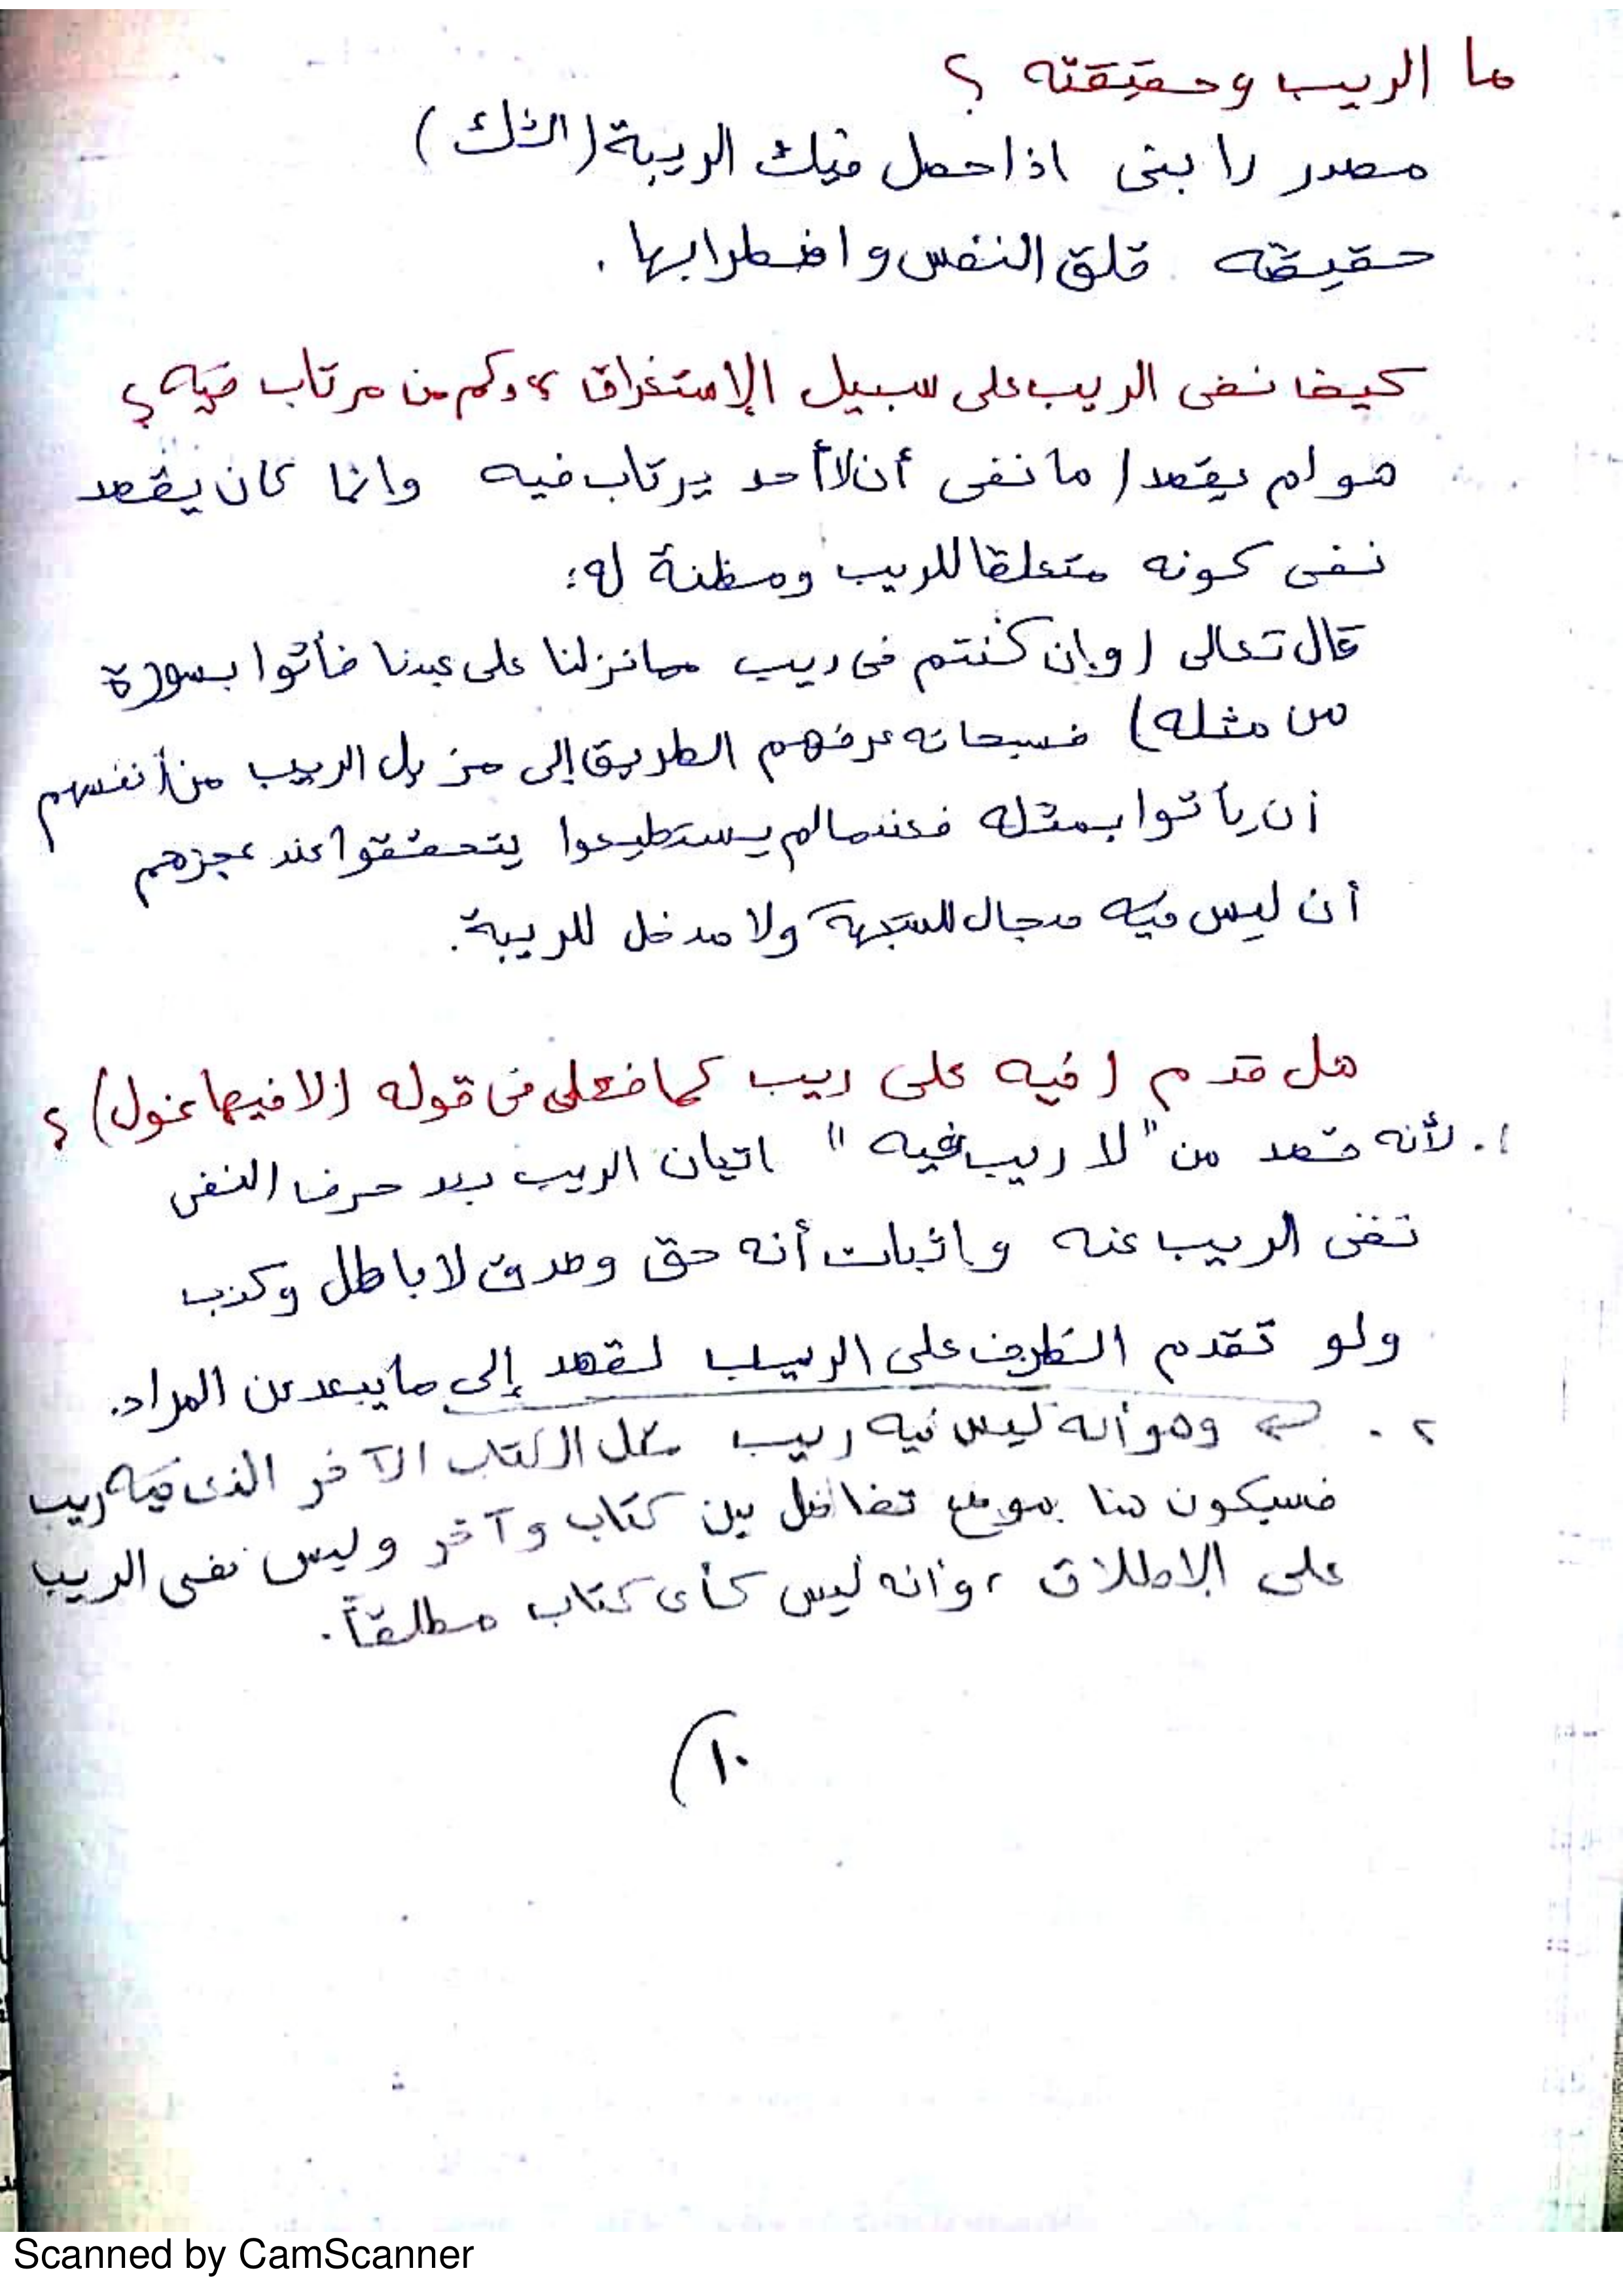 ما الريب وحقيقته ؟
مصدر رابنى اذا حصل فيك الريبة (الشك)
حقيقته قلق النفس واضطرابها .
كيف نفى الريب على سبيل الإستغراق ؟ وكم من مرتاب فيه ؟
هو لم يقصد / ما نفى أن لا أحد يرتاب فيه وانما كان يقصد
نفى كونه متعلقا للريب ومظنة له :
قال تعالى (وإن كنتم فى ريب مما نزلنا على عبدنا فأتوا بسورة
من مثله) فسبحانه عرفهم الطريق إلى مزيل الريب من أنفسهم
أن يأتوا بمثله فعندما لم يستطيعوا يتحققوا عند عجزهم
أن ليس فيه مجال للشبهة ولا مدخل للريبة .
هل قدم (فيه على ريب كما فعل فى قوله (لا فيها غول) ؟
١. لأنه قصد من "لا ريب فيه" اتيان الريب بعد حرف النفى
نفى الريب عنه واثبات أنه حق وصدق لا باطل وكذب
ولو تقدم الظرف على الريب لقصد إلى ما يبعد عن المراد.
٢. وهو أنه ليس فيه ريب كل الكتاب الآخر الذى فيه ريب
فسيكون هنا موضع تفاضل بين كتاب وآخر وليس نفى الريب
على الإطلاق ، وأنه ليس كأى كتاب مطلقاً .
١٠)
Scanned by CamScanner